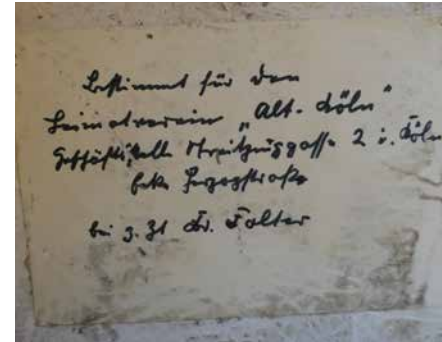 Bestimmt für den
Heimatverein „Alt-Köln"
Geschäftsstelle Streitzeuggasse 2 i. Köln
Ecke Herzogstraße
bei z. Zt. Dr. Falter